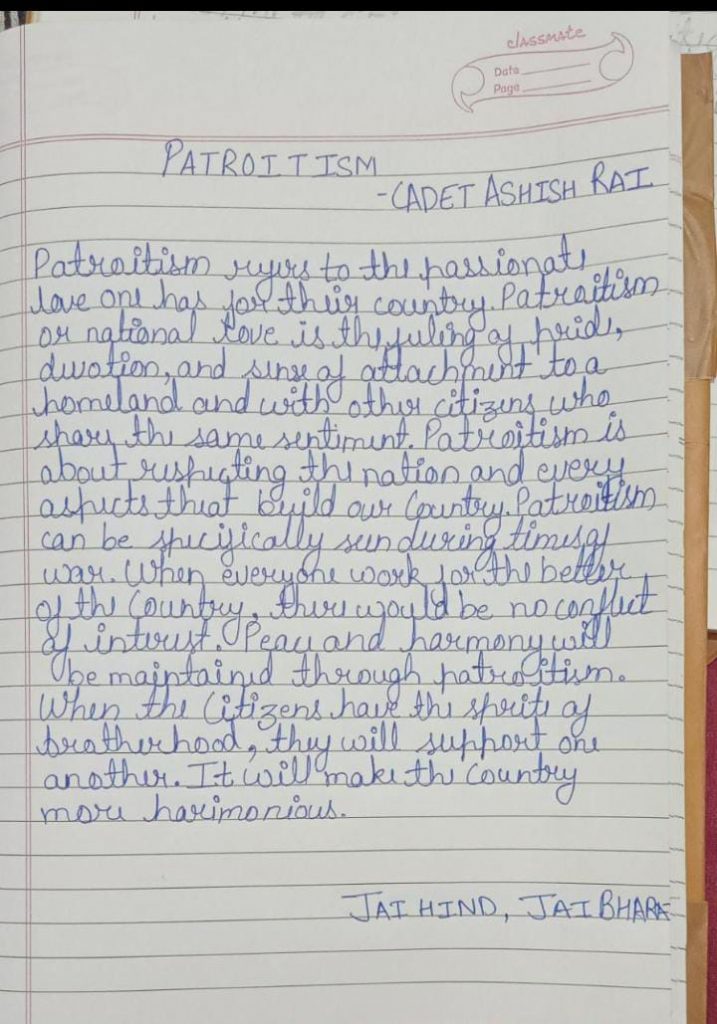 classmate
Date
Page
PATROITISM
-CADET ASHISH RAI
Patroitism refers to the passionate
love one has for their country. Patroitism
or national love is the feeling of pride,
devotion, and sense of attachment to a
homeland and with other citizens who
share the same sentiment. Patroitism is
about respecting the nation and every
aspects that build our Country. Patroitism
can be specifically seen during times of
war. When everyone work for the better
of the Country, there would be no conflict
of interest. Peace and harmony will
be maintained through patroitism.
When the Citizens have the sprite of
brotherhood, they will support one
another. It will make the Country
more harimonious.
JAI HIND, JAI BHARA